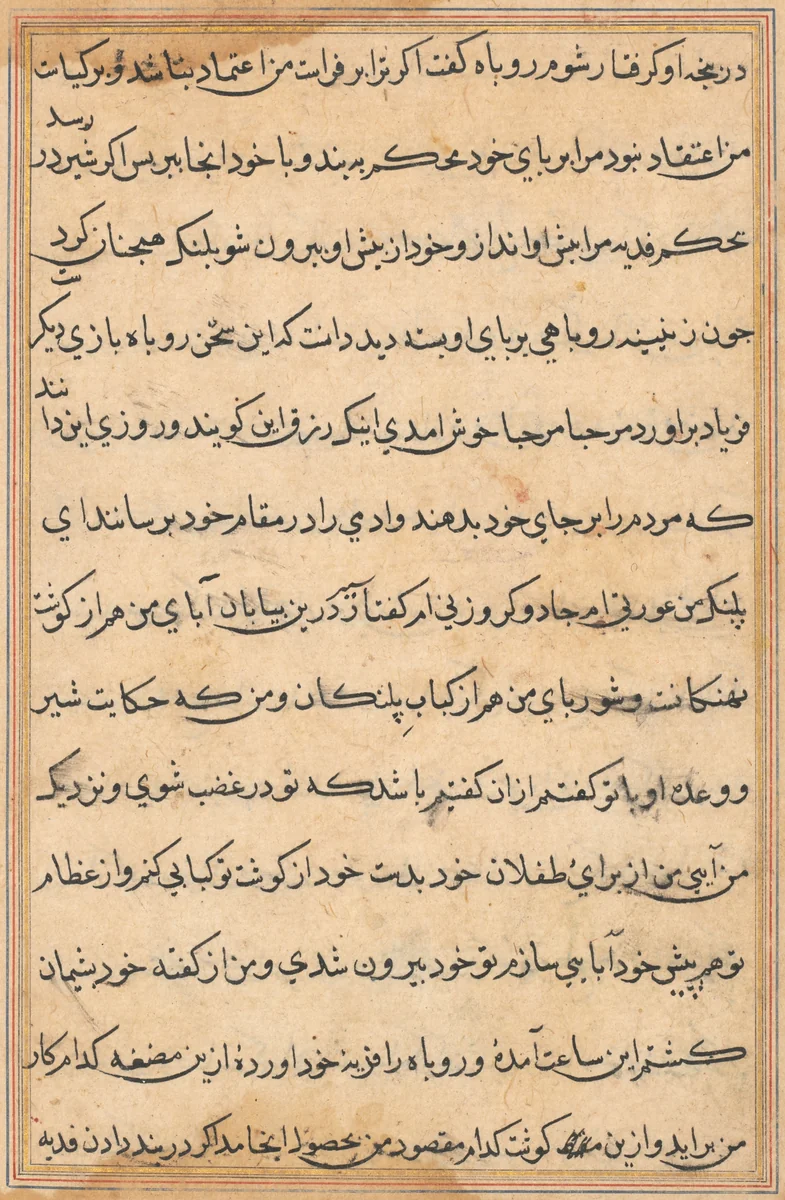 در پنجه او کرفتار شوم روباه کفت اکر ترا بر فراست من اعتماد نباشد و بر کیاست
من اعتقاد نبود مرا بر پای خود محکم به بند و با خود انجا ببر پس اکر شیر در رسد
بحکم فدیه مرا پیش او انداز و خود از پیش او بیرون شو پلنک همچنان کرد
جون زن بیند روباهی بر پای او بسته دید دانست که این سخن روباه بازی دیکرست
فریاد براورد مرحبا مرحبا خوش امدی اینک رزق این کویند و روزی این دانند
که مردم را بر جای خود بدهند و ادمی را در مقام خود برسانند ای
پلنک من عورتی ام جادو کر و زنی ام کفتار در این بیابان آبای من هم از کوشت
نهنکانست و شوربای من هم از کباب پلنکان و من که حکایت شیر
و وعده او با تو کفتم از ان کفتیم باشد که تو در غضب شوی و نزدیک
من آیی من از برای طفلان خود بدست خود از کوشت تو کبابی کنم و از عظام
تو هم پیش خود آبایی سازم تو خود بیرون شدی و من از کفته خود پشیمان
کشتم این ساعت آمدهٔ و روباه را فدیه خود اوردهٔ ازین مضغه کدام کار
من براید و ازین کوشت کدام مقصود من بحصول انجامد اکر در بند دادن فدیه